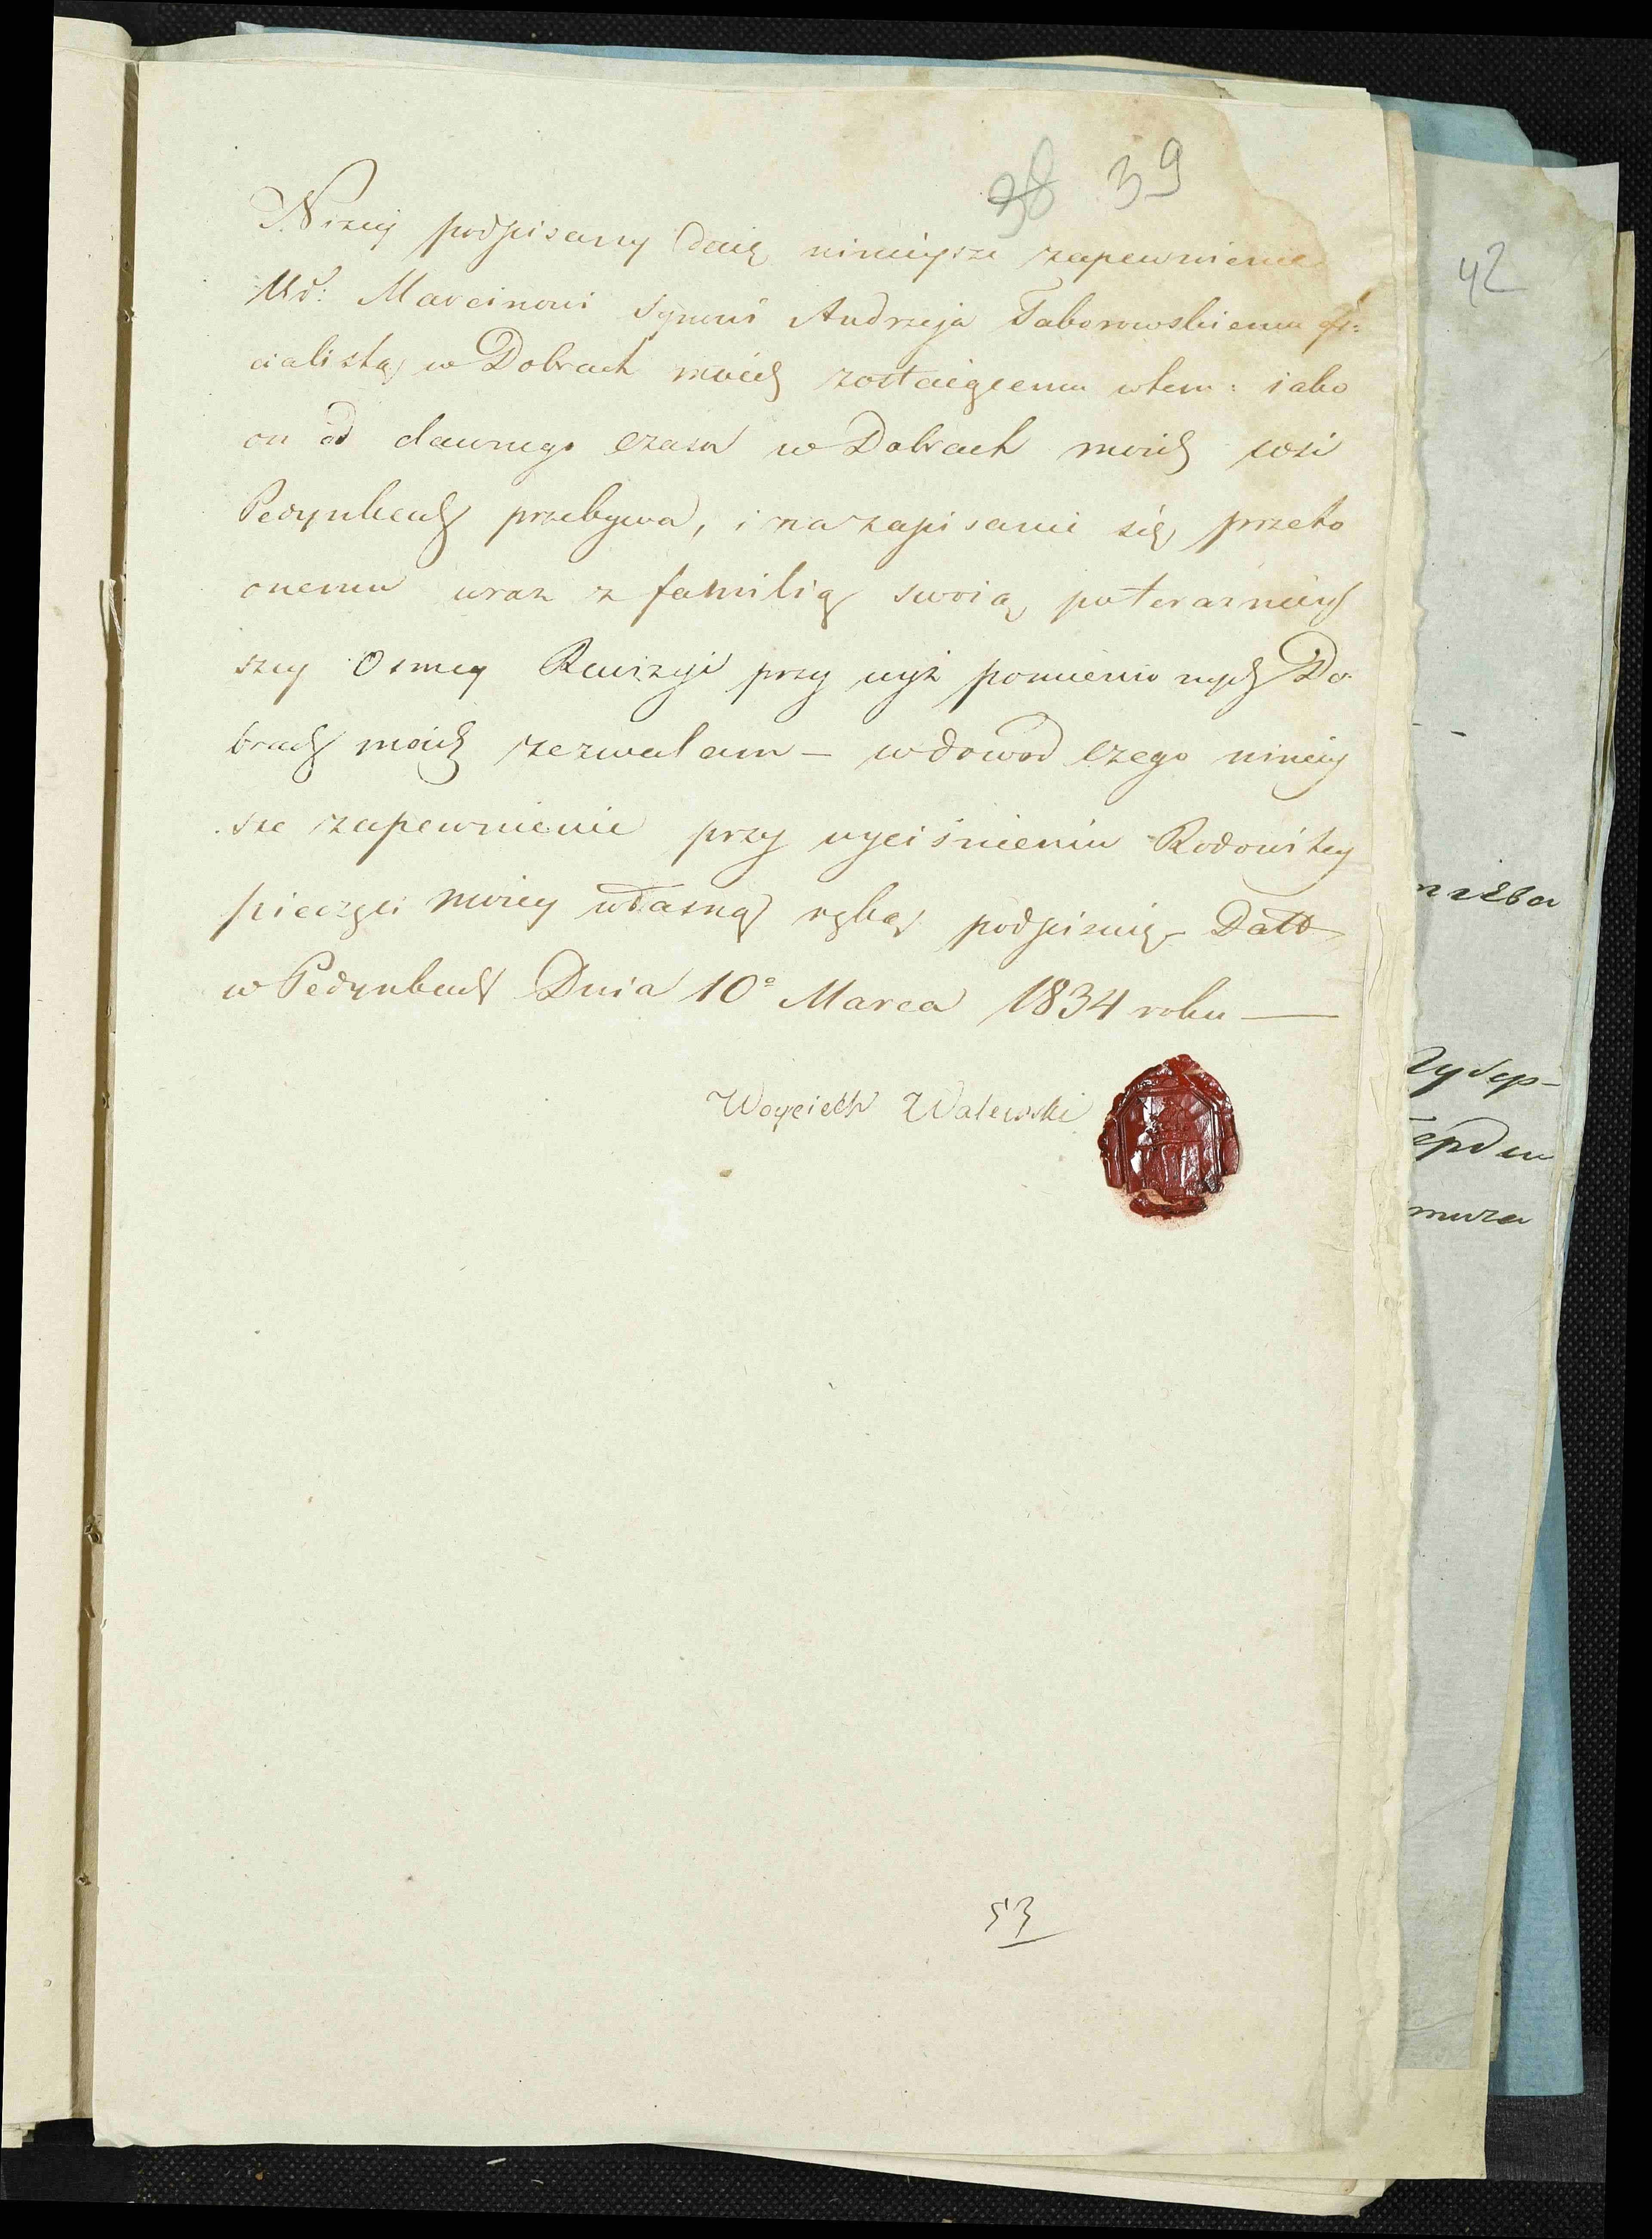 38 39
Niżej podpisany daię ninieysze zapewnienie
Ur: Marcinowi synowi Andrzeja Taborowskiemu ofi:
cialistą w Dobrach moich zostaięcemu wtem: iako
on od dawnego czasu w Dobrach moich wsi
Pedynkach przebywa, i na zapisanie się przeto
onemu wraz z familią swoią po terazniey
szey Osmey Rewizyi przy wyż pomienionych Do
brach moich zezwalam — w dowód czego niniey
sze zapewnienie przy wyciśnieniu Rodowitey
pieczęci moiey własną ręką podpisuię Datt
w Pedynkach Dnia 10º Marca 1834 roku —
Woyciech Walewski
53
42